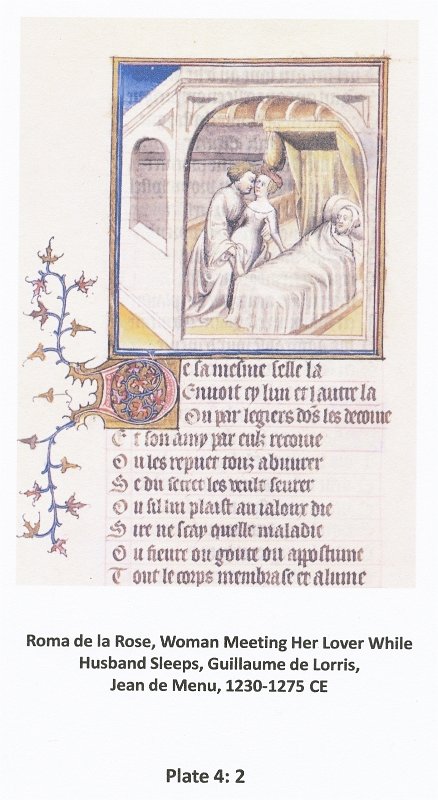 De sa mesme selle la
Envoit cy lun et lautre la
Ou par legiers dōs les decoiue
Et son amy par eulx recoiue
Ou les repuet touz abuurer
Se du secret les veult seurer
Ou sil lui plaist au ialoux die
Sire ne scay quelle maladie
Ou fieure ou goute ou appostume
Tout le corps membrase et alume
Roma de la Rose, Woman Meeting Her Lover While
Husband Sleeps, Guillaume de Lorris,
Jean de Menu, 1230-1275 CE
Plate 4: 2